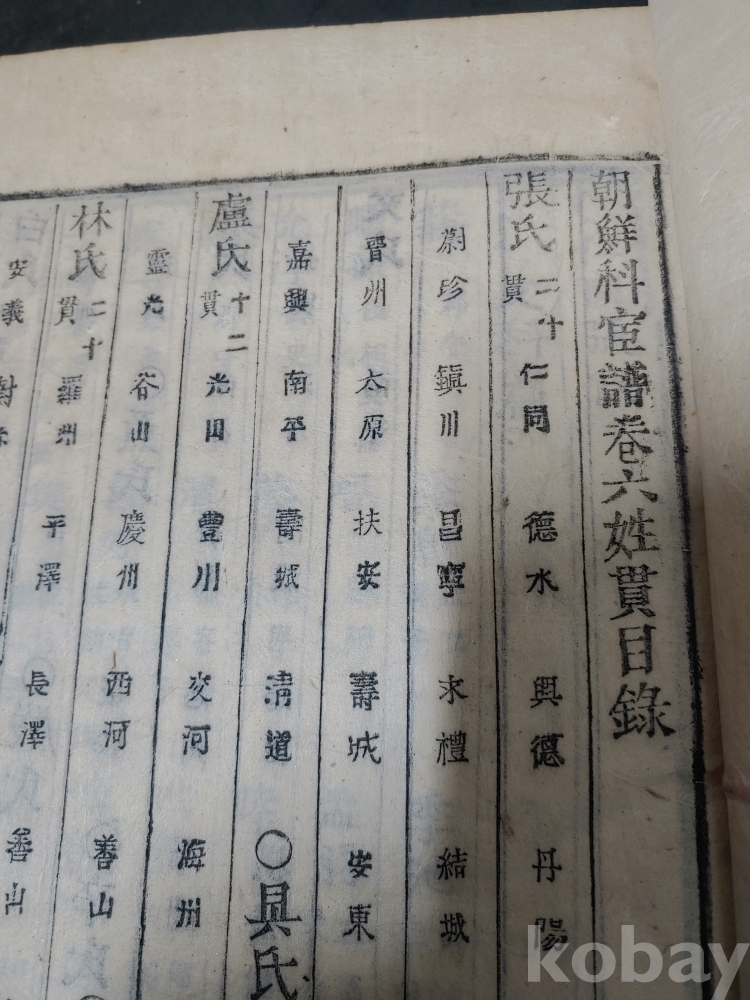 朝鮮科宦譜卷六姓貫目錄
張氏 二十貫 仁同 德水 興德 丹陽
蔚珍 鎭川 昌寧 求禮 結城
晋州 太原 扶安 壽城 安東
嘉興 南平 壽城 淸道 〇具氏
盧氏 十二貫 光田 豊川 交河 海州
靈光 谷山 慶州 西河 善山
林氏 二十貫 羅州 平澤 長澤 善山
安義
kobay